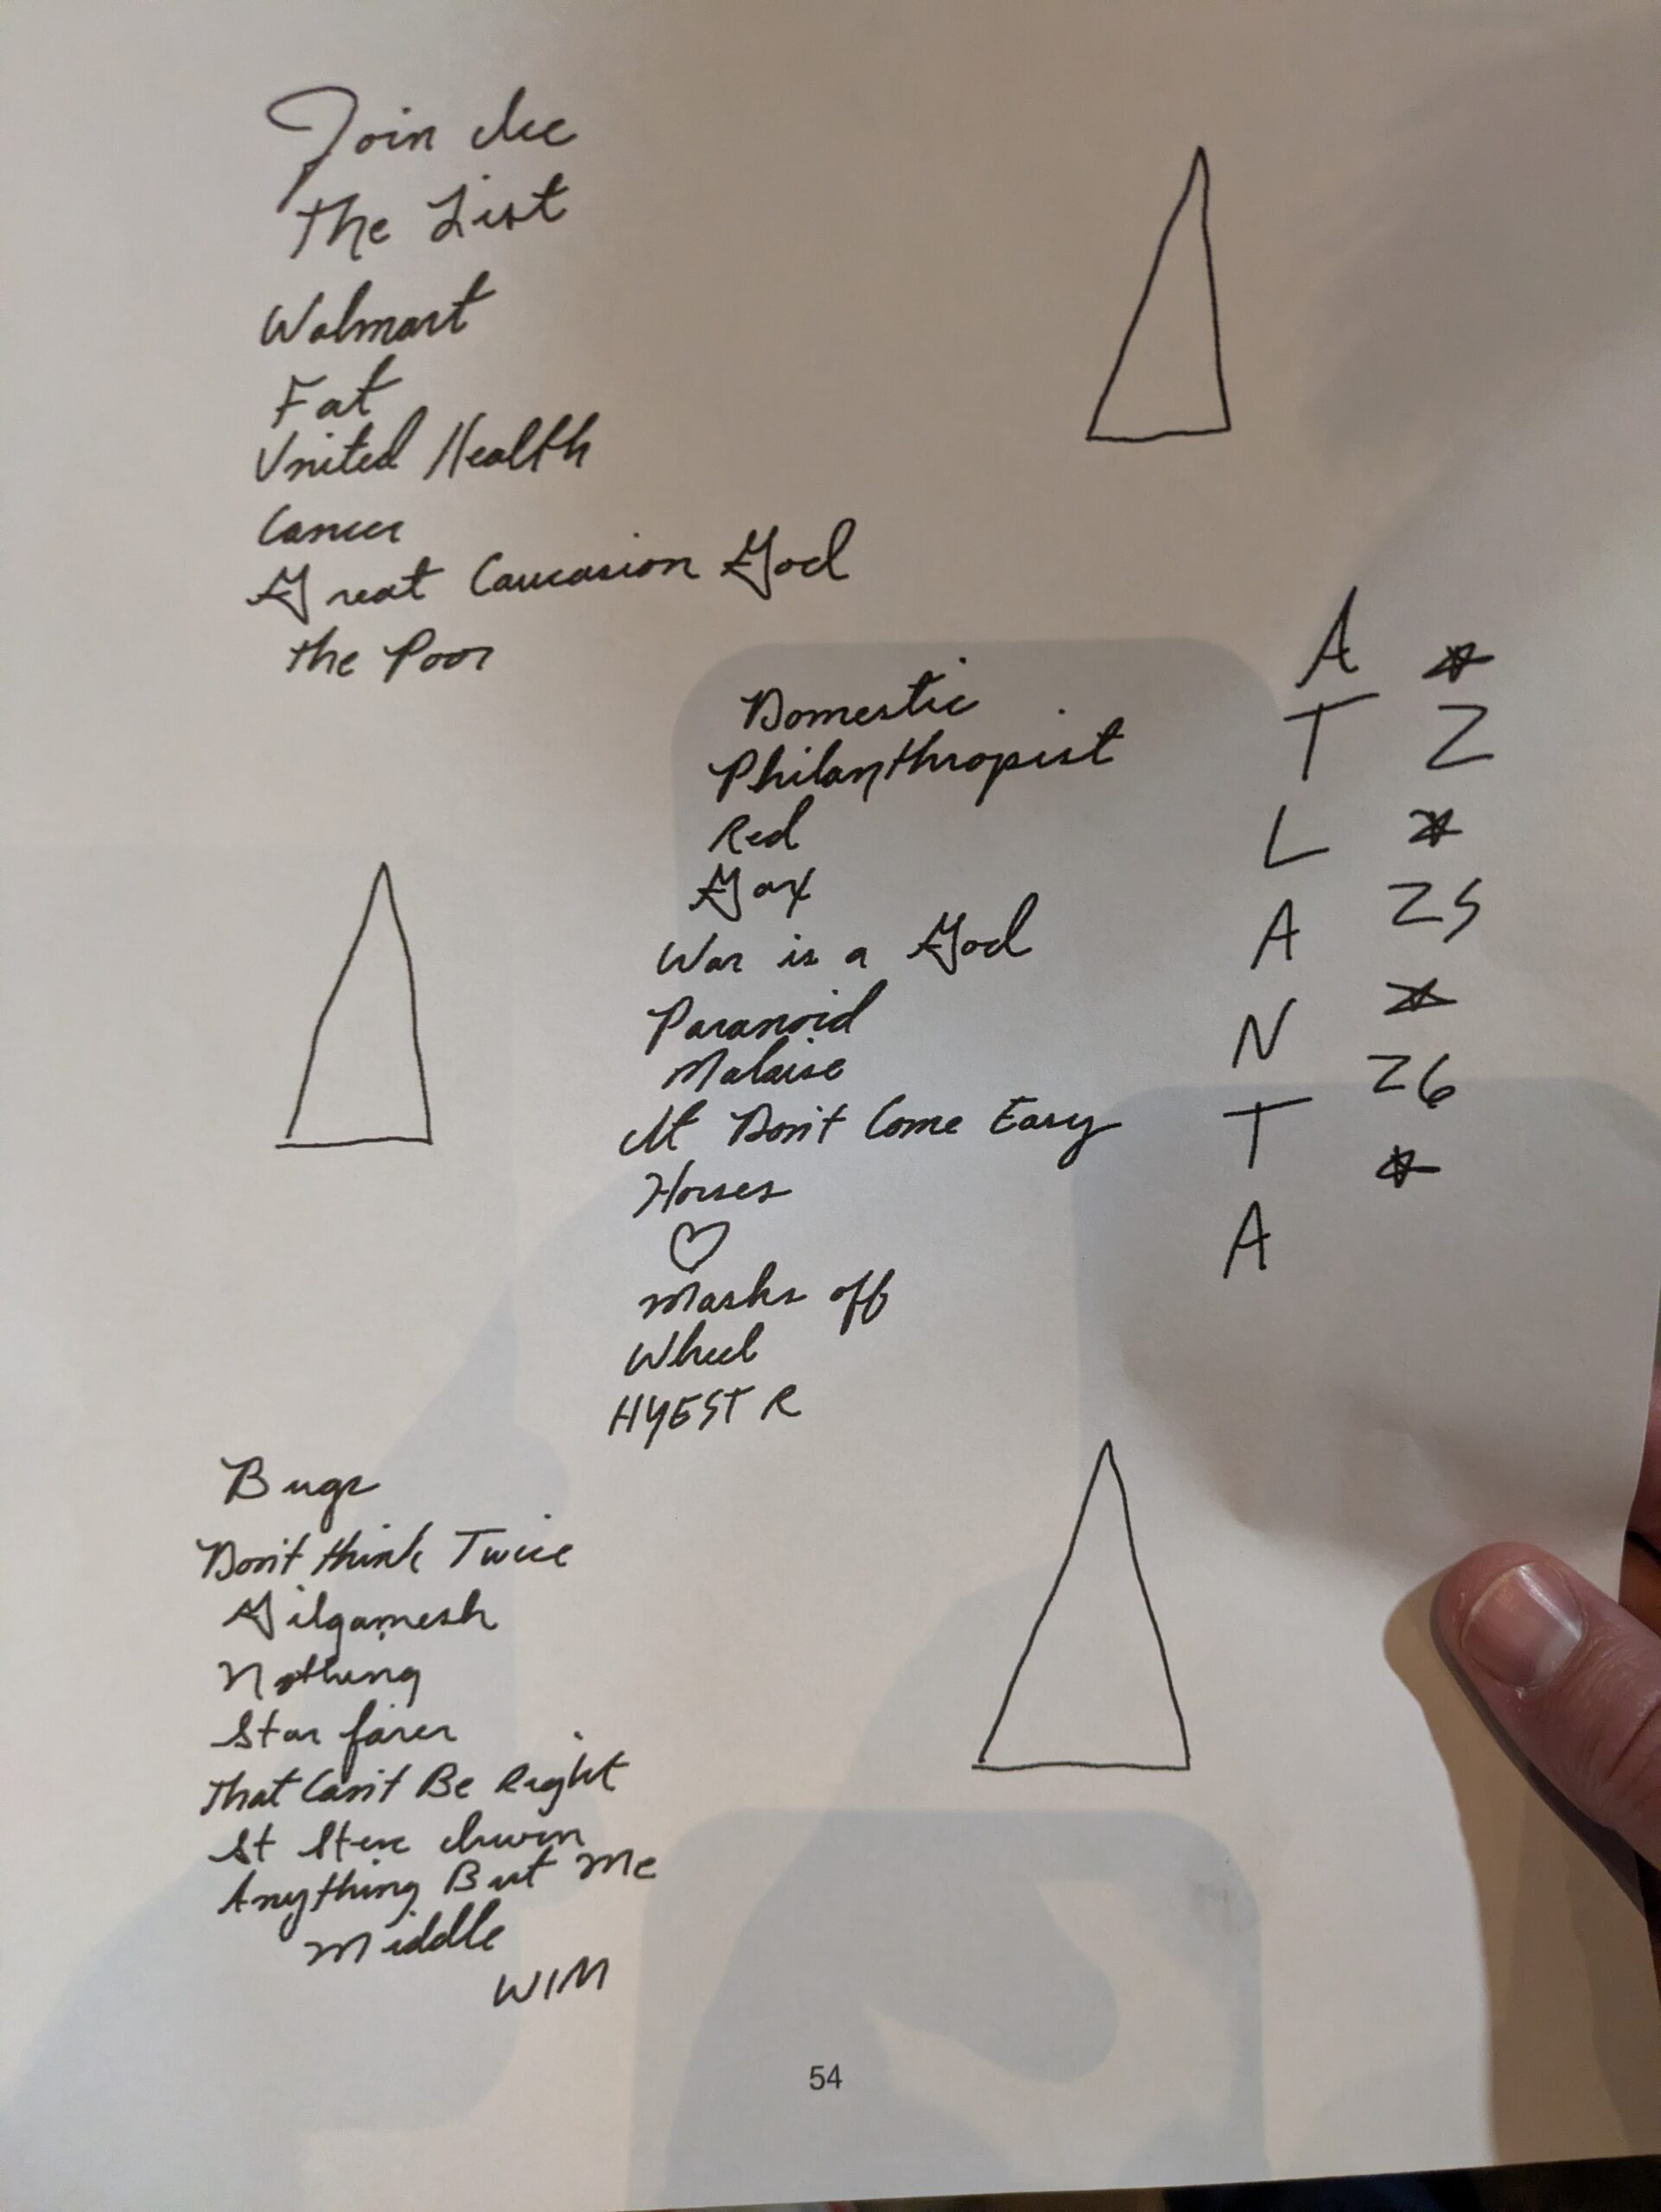 Join Ice
The List
Walmart
Fat
United Health
Cancer
Great Caucasion God
The Poor
Domestic
Philanthropist
Red
War is a God
Paranoid
Malaise
It Don't Come Easy
Horses
♡
Masks off
Wheel
HYEST R
Bugs
Don't think Twice
Gilgamesh
Nothing
Star farer
That Can't Be Right
St Steve Irwin
Anything But Me
Middle
WIM
A *
T 2
L *
A 25
N *
T 26
A *
54